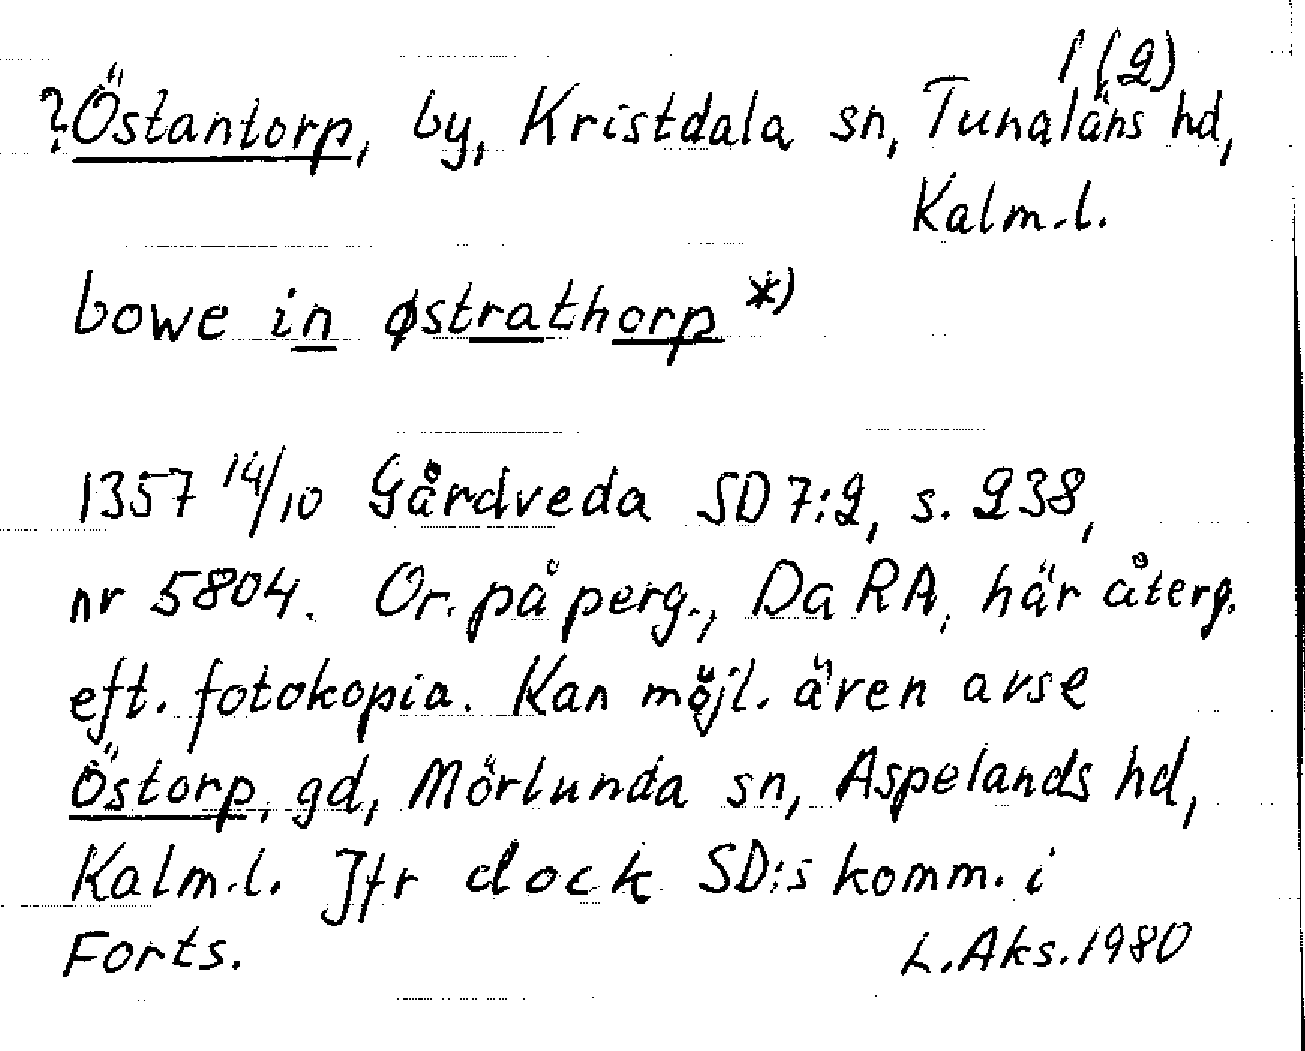 1 (2)
?Östantorp, by, Kristdala sn, Tunaläns hd,
Kalm.l.
bowe in østrathorp *)
1357 14/10 Gårdveda SD 7:2, s. 238,
nr 5804. Or. på perg., DaRA, här återg.
eft. fotokopia. Kan möjl. även avse
Östorp, gd, Mörlunda sn, Aspelands hd,
Kalm.l. Jfr dock SD:s komm. i
Forts. L.Aks.1980